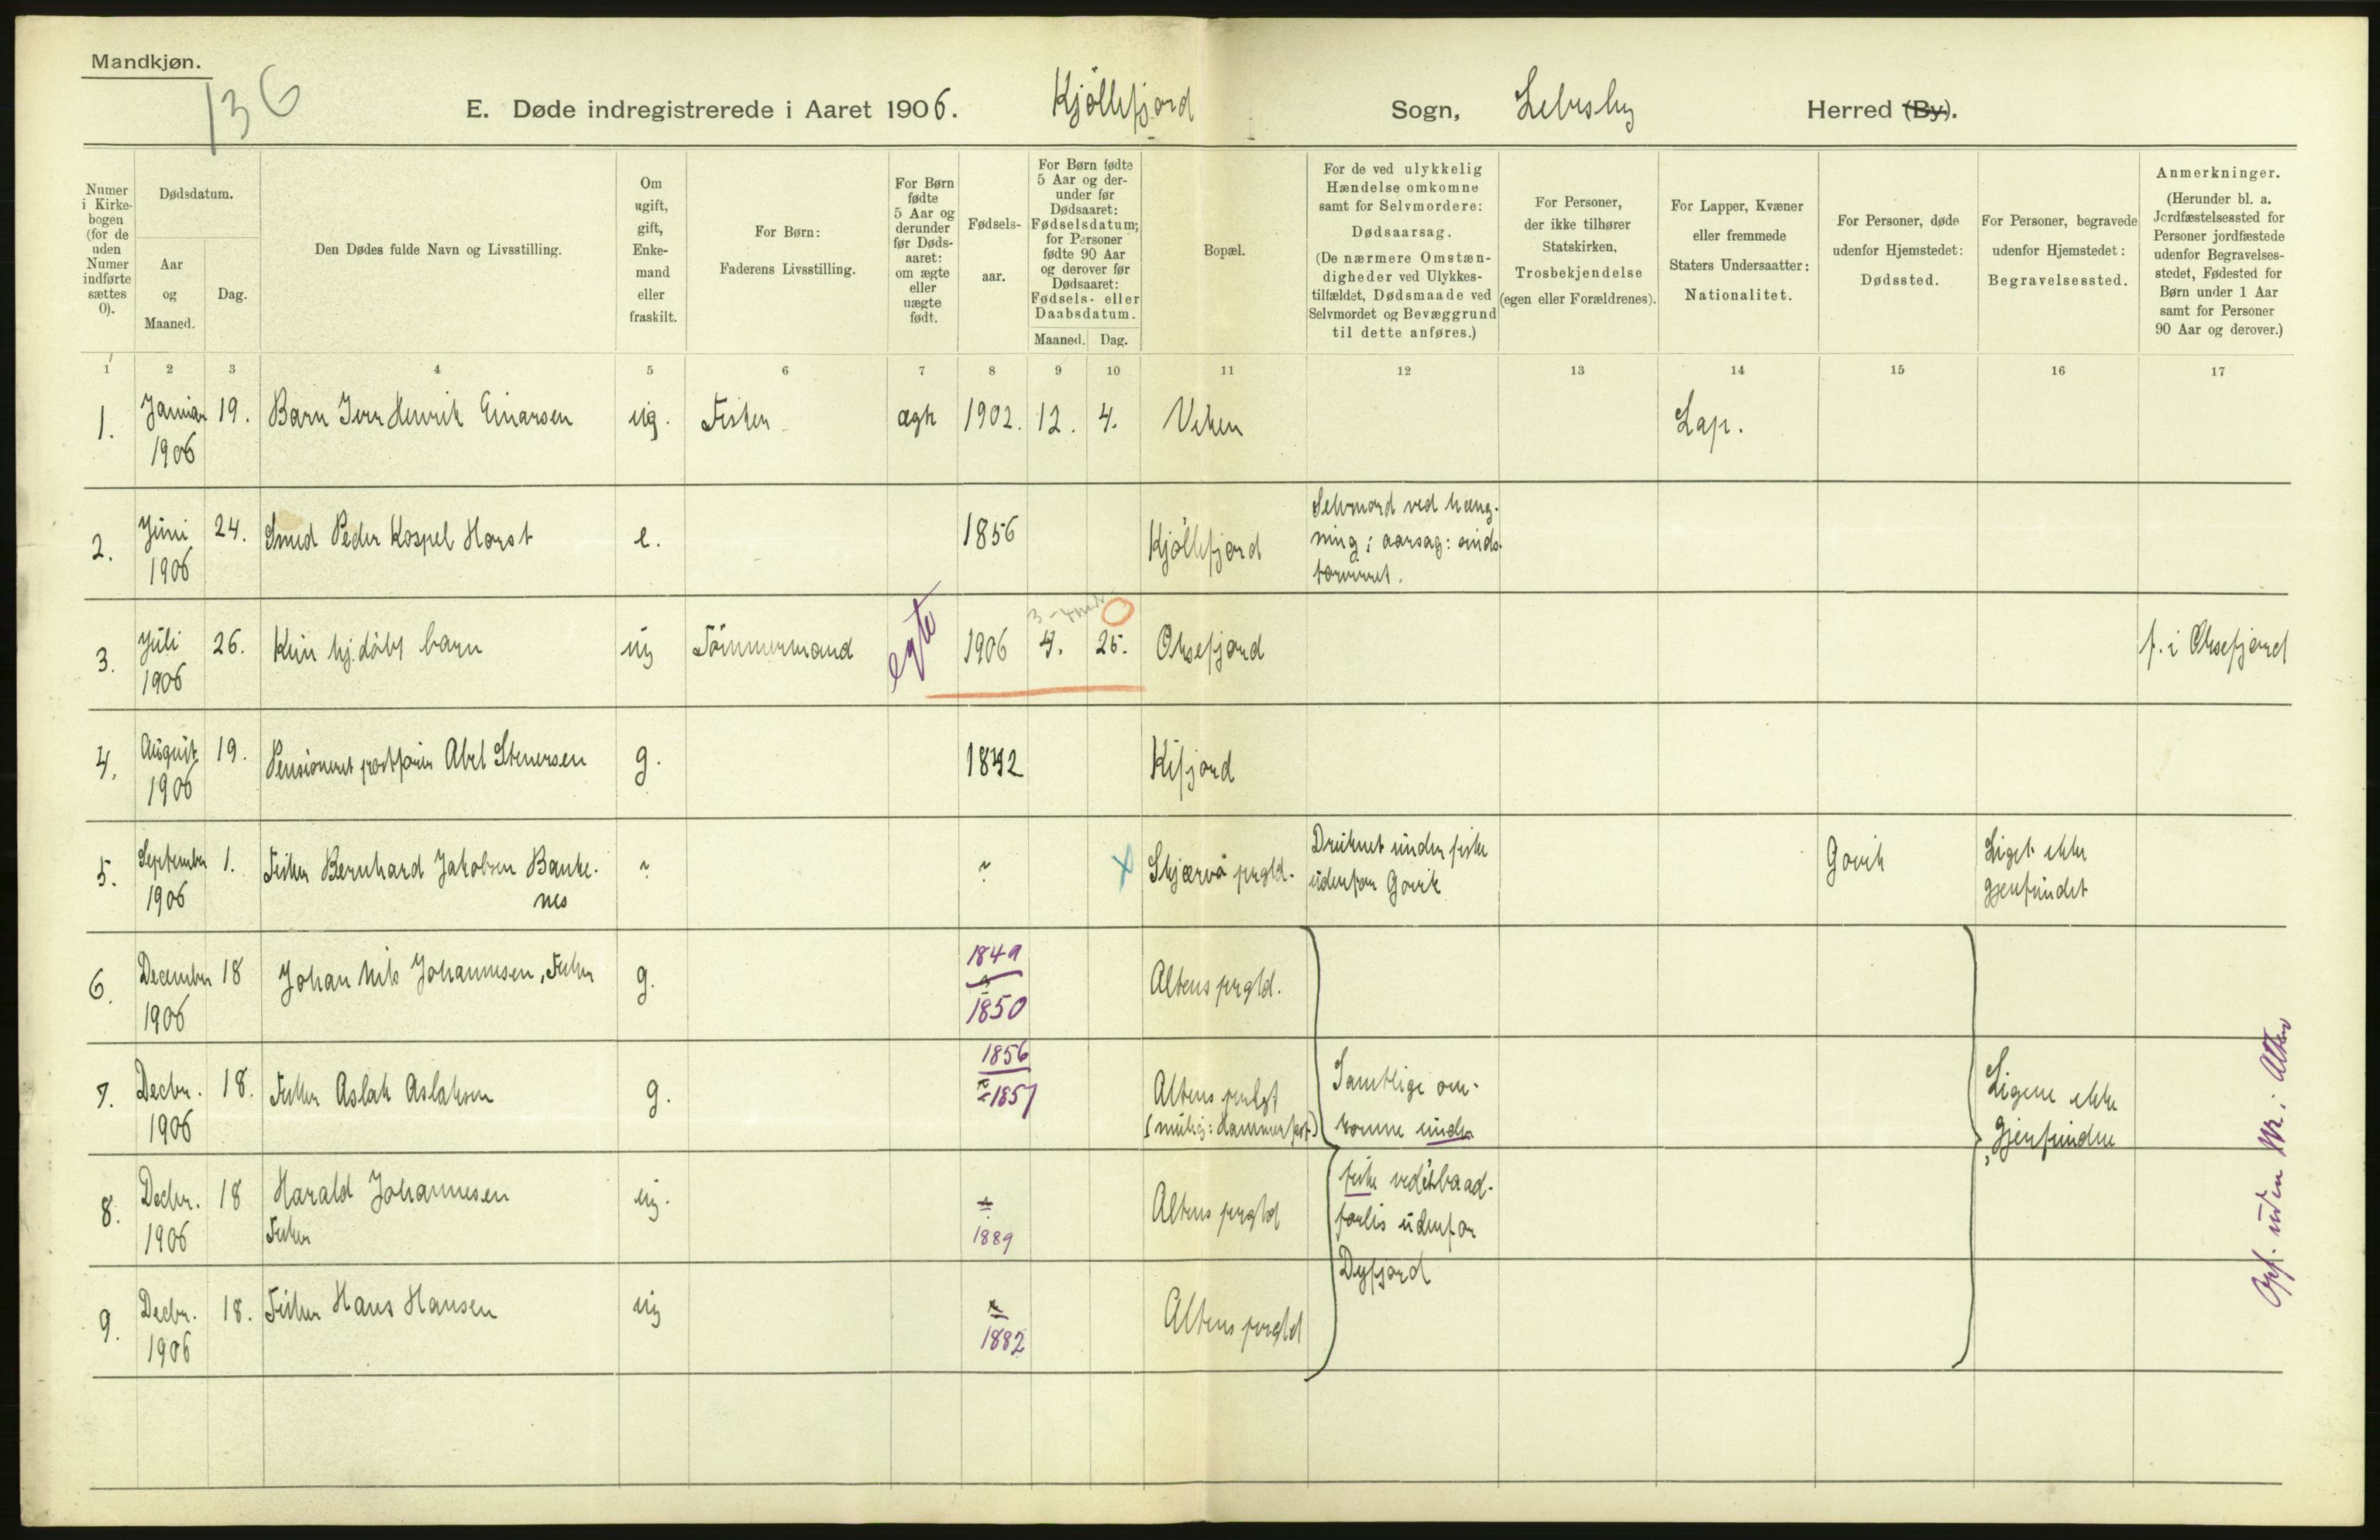 Mandkjøn.
136
E. Døde indregistrerede i Aaret 1906. Kjöllefjord Sogn, Lebesby Herred (By).
Numer i Kirkebogen (for de uden Numer indførte sættes 0).
Dødsdatum.
Aar og Maaned.
Dag.
Den Dødes fulde Navn og Livsstilling.
Om ugift, gift, Enkemand eller fraskilt.
For Børn: Faderens Livsstilling.
For Børn fødte 5 Aar og derunder før Dødsaaret: om ægte eller uægte født.
Fødselsaar.
For Børn fødte 5 Aar og derunder før Dødsaaret: Fødselsdatum; for Personer fødte 90 Aar og derover før Dødsaaret: Fødsels- eller Daabsdatum.
Maaned. Dag.
Bopæl.
For de ved ulykkelig Hændelse omkomne samt for Selvmordere: Dødsaarsag. (De nærmere Omstændigheder ved Ulykkestilfældet, Dødsmaade ved Selvmordet og Bevæggrund til dette anføres.)
For Personer, der ikke tilhører Statskirken, Trosbekjendelse (egen eller Forældrenes).
For Lapper, Kvæner eller fremmede Staters Undersaatter: Nationalitet.
For Personer, døde udenfor Hjemstedet: Dødssted.
For Personer, begravede udenfor Hjemstedet: Begravelsessted.
Anmerkninger. (Herunder bl. a. Jordfæstelsessted for Personer jordfæstede udenfor Begravelsesstedet, Fødested for Børn under 1 Aar samt for Personer 90 Aar og derover.)
1 2 3 4 5 6 7 8 9 10 11 12 13 14 15 16 17
1. Januar 1906 19. Barn Iver Henrik Einarsen ug. Fisker ægte 1902. 12. 4. Veken Lap.
2. Juni 1906 24. Smed Peder Kospel Horst e. 1856 Kjöllefjord
Selvmord ved hæng-
ning; aarsag: sinds-
forvirret.
3. Juli 1906 26. Kun hj. döbt barn ug Tömmermand egte 1906 4. 25. Oksefjord f. i Oksefjord
3 - 4 mdr
4. August 1906 19. Pensioneret postförer Abel Stenersen g. 1842 Kifjord
5. September 1906 1. Fisker Bernhard Jakobsen Banke-
nes ? ? x Skjærvö prgld.
Druknet under fiske
udenfor Gavik
Gavik
Liget ikke
gjenfundet
6. December 1906 18 Johan Nils Johannesen, Fisker g. 1849 1850 Altens prgld.
7. Decbr. 1906 18. Fisker Aslak Aslaksen g. 1856 ? 1857 Altens prglgd
(mulig: Hammerfest)
8. Decbr. 1906 18 Harald Johannesen
Fisker ug. 1889 Altens prgld
9. Decbr. 1906 18. Fisker Hans Hansen ug 1882 Altens prgld
Samtlige om-
komne under
fiske ved baad-
forlis udenfor
Dyfjord
Ligene ikke
gjenfundne
Opf. uden Nr. i Alten